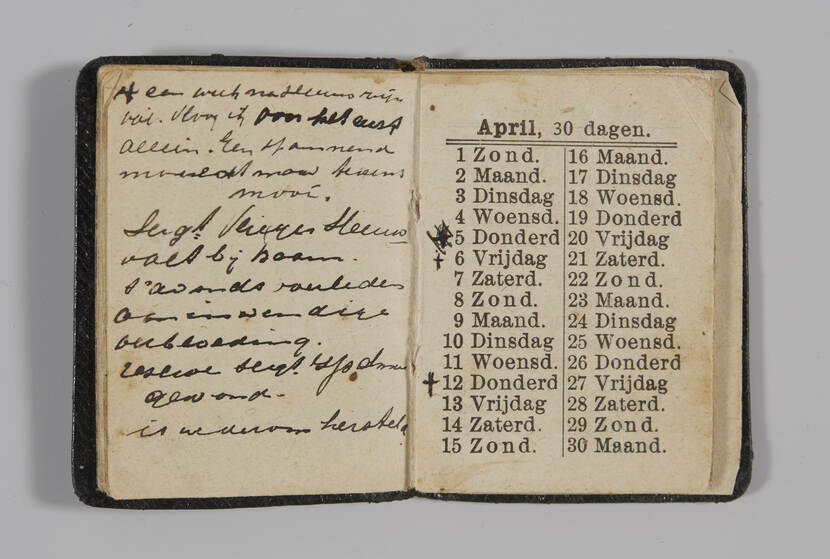 + een week na zijn
val. Vloog ik voor het eerst
alleen. Een spannend
moment maar tevens
mooi.
Sergt. Vlieger
valt bij Baarn.
s'avonds overleden
aan inwendige
verbloeding.
reserve sergt.
gewond.
is wederom hersteld
April, 30 dagen.
1 Zond. 16 Maand.
2 Maand. 17 Dinsdag
3 Dinsdag 18 Woensd.
4 Woensd. 19 Donderd
5 Donderd 20 Vrijdag
+ 6 Vrijdag 21 Zaterd.
7 Zaterd. 22 Zond.
8 Zond. 23 Maand.
9 Maand. 24 Dinsdag
10 Dinsdag 25 Woensd.
11 Woensd. 26 Donderd
+ 12 Donderd 27 Vrijdag
13 Vrijdag 28 Zaterd.
14 Zaterd. 29 Zond.
15 Zond. 30 Maand.